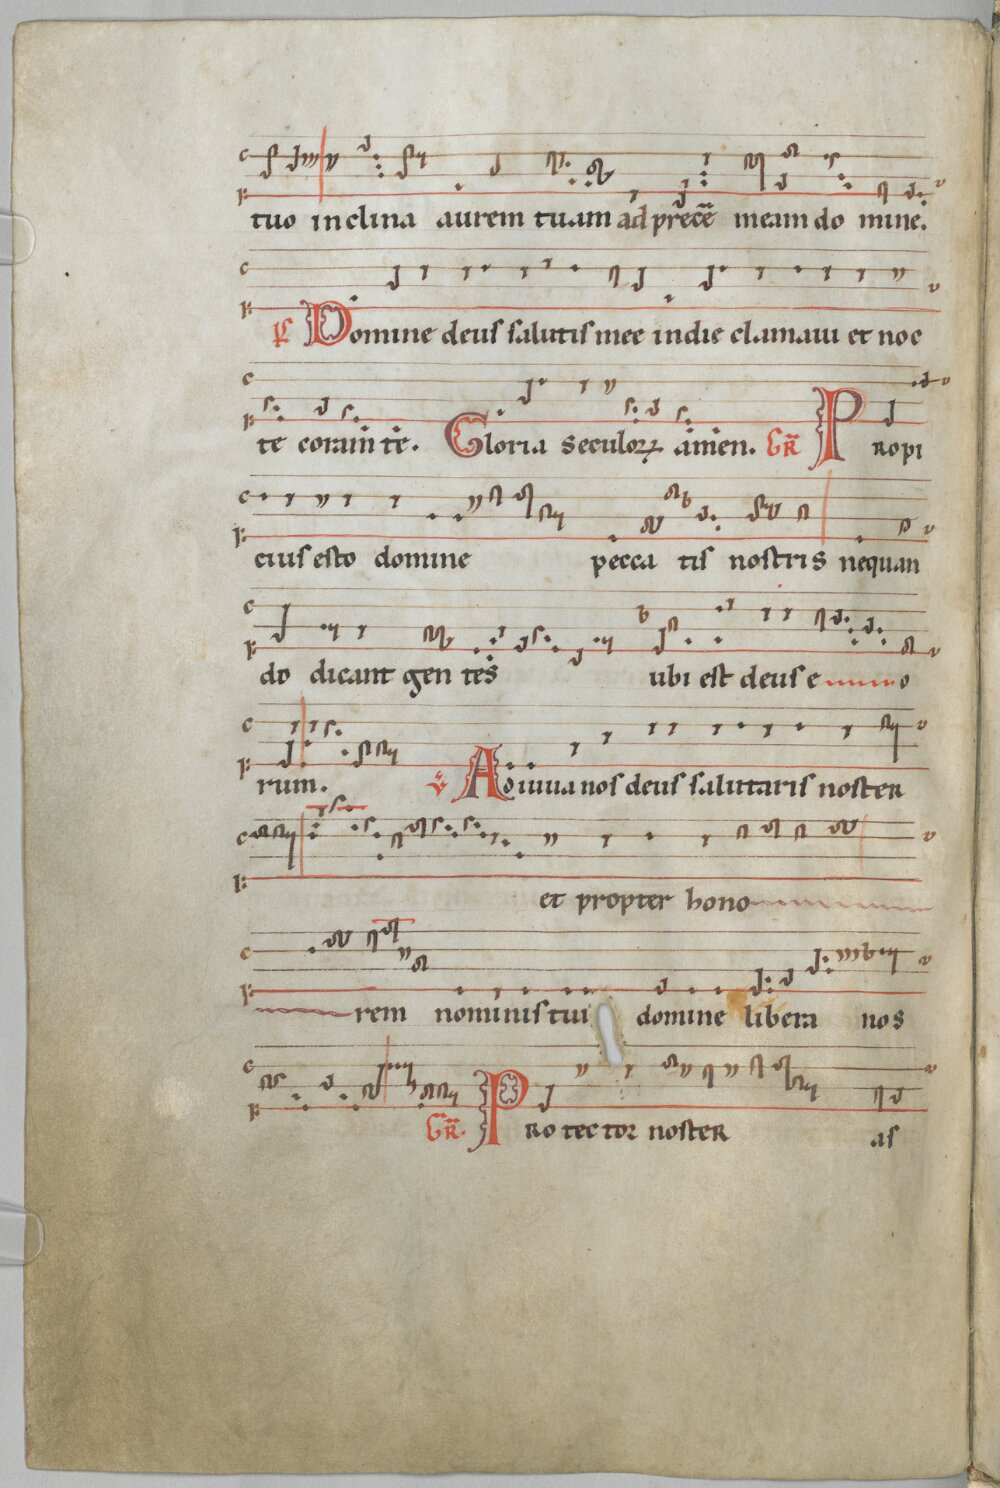 tuo inclina aurem tuam ad precē meam do mine.
Ps Domine deus salutis mee in die clamaui et noc
te coram te. Gloria seculoꝝ amen. GR Propi
cius esto domine pecca tis nostris nequan
do dicant gen tes ubi est deus e o
rum. V Adiuua nos deus salutaris noster
et propter hono
rem nominis tui domine libera nos
GR. Protector noster as